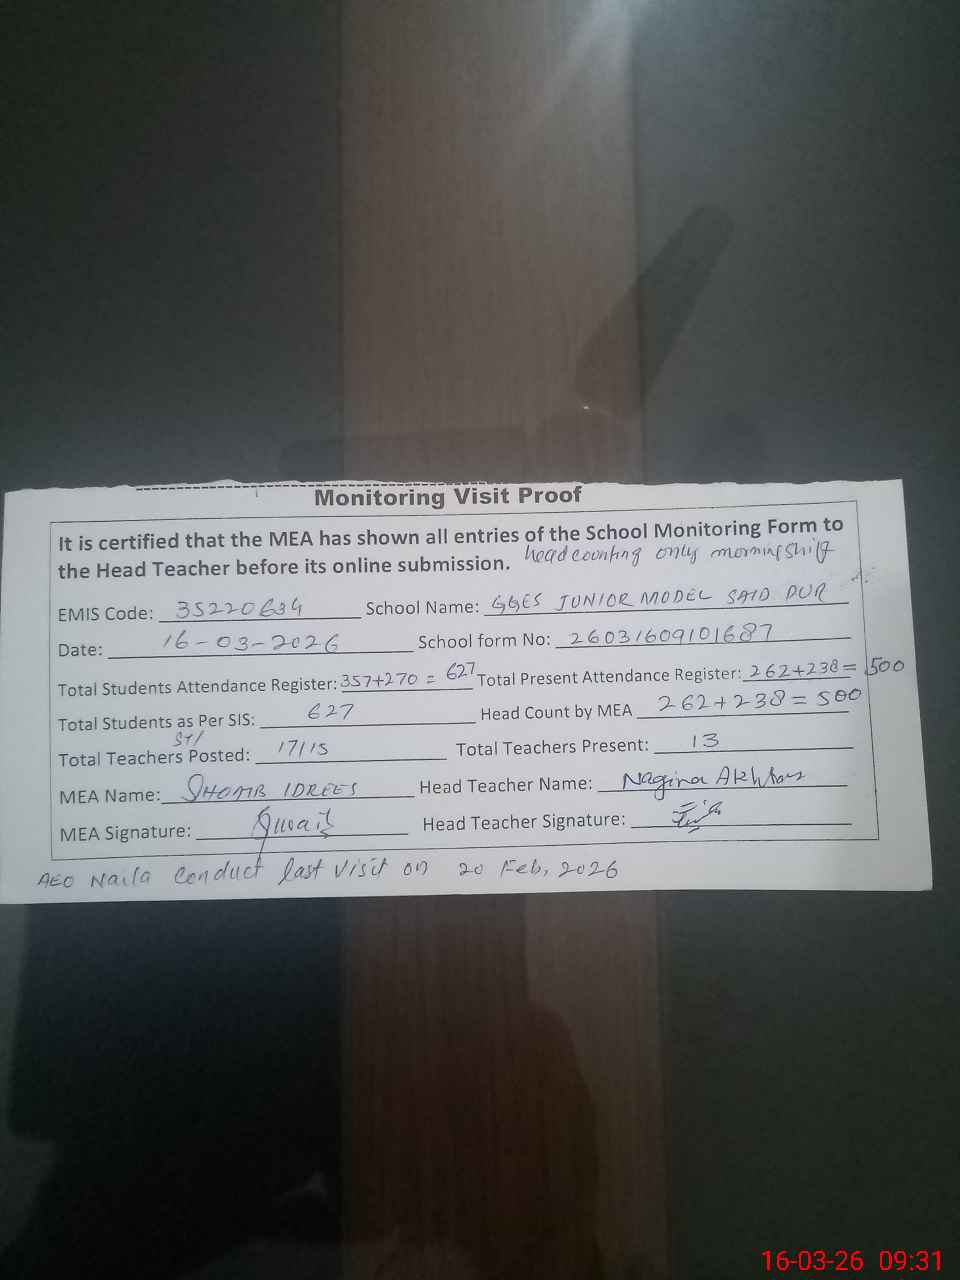 Monitoring Visit Proof
It is certified that the MEA has shown all entries of the School Monitoring Form to
the Head Teacher before its online submission. headcounting only morningshift
EMIS Code: 35220634 School Name: GGES JUNIOR MODEL SAID PUR
Date: 16-03-2026 School form No: 26031609101687
Total Students Attendance Register: 357+270 = 627 Total Present Attendance Register: 262+238 = 500
Total Students as Per SIS: 627 Head Count by MEA 262+238 = 500
ST/
Total Teachers Posted: 17/15 Total Teachers Present: 13
MEA Name: SHOAIB IDREES Head Teacher Name: Nagina Akhtar
MEA Signature: Head Teacher Signature:
AEO Naila Conduct last visit on 20 Feb, 2026
16-03-26 09:31